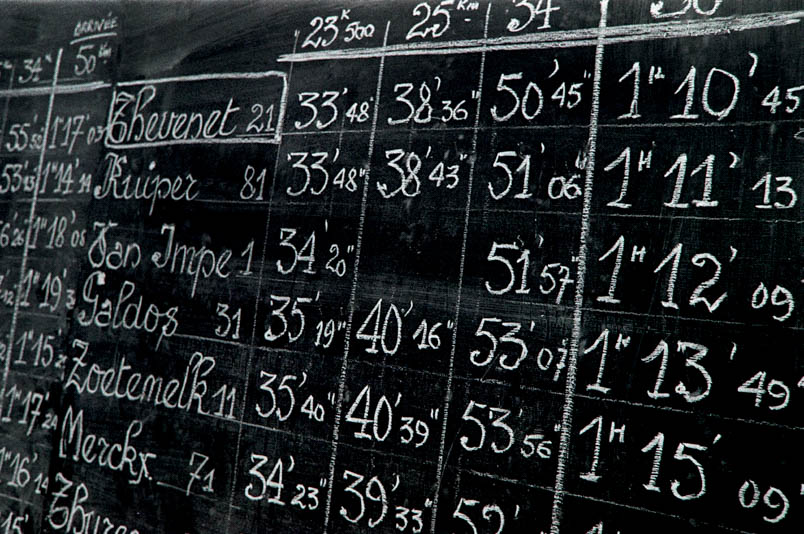 ARRIVÉE
34 50 Km 23 K 500 25 Km 34 50
55' 1H17'03 Thevenet 21 33'48" 38'36" 50'45" 1H10'45
53' 1H14' Kuiper 81 33'48" 38'43" 51'06" 1H11'13
1H18'08 Van Impe 1 34'20" 51'57" 1H12'09
1H19' Galdos 31 35'19" 40'16" 53'07" 1H13'49"
1H15' Zoetemelk 11 35'40" 40'39" 53'56" 1H15'09"
1H17' Merckx 71 34'23" 39'33" 52'
1H16'
15'